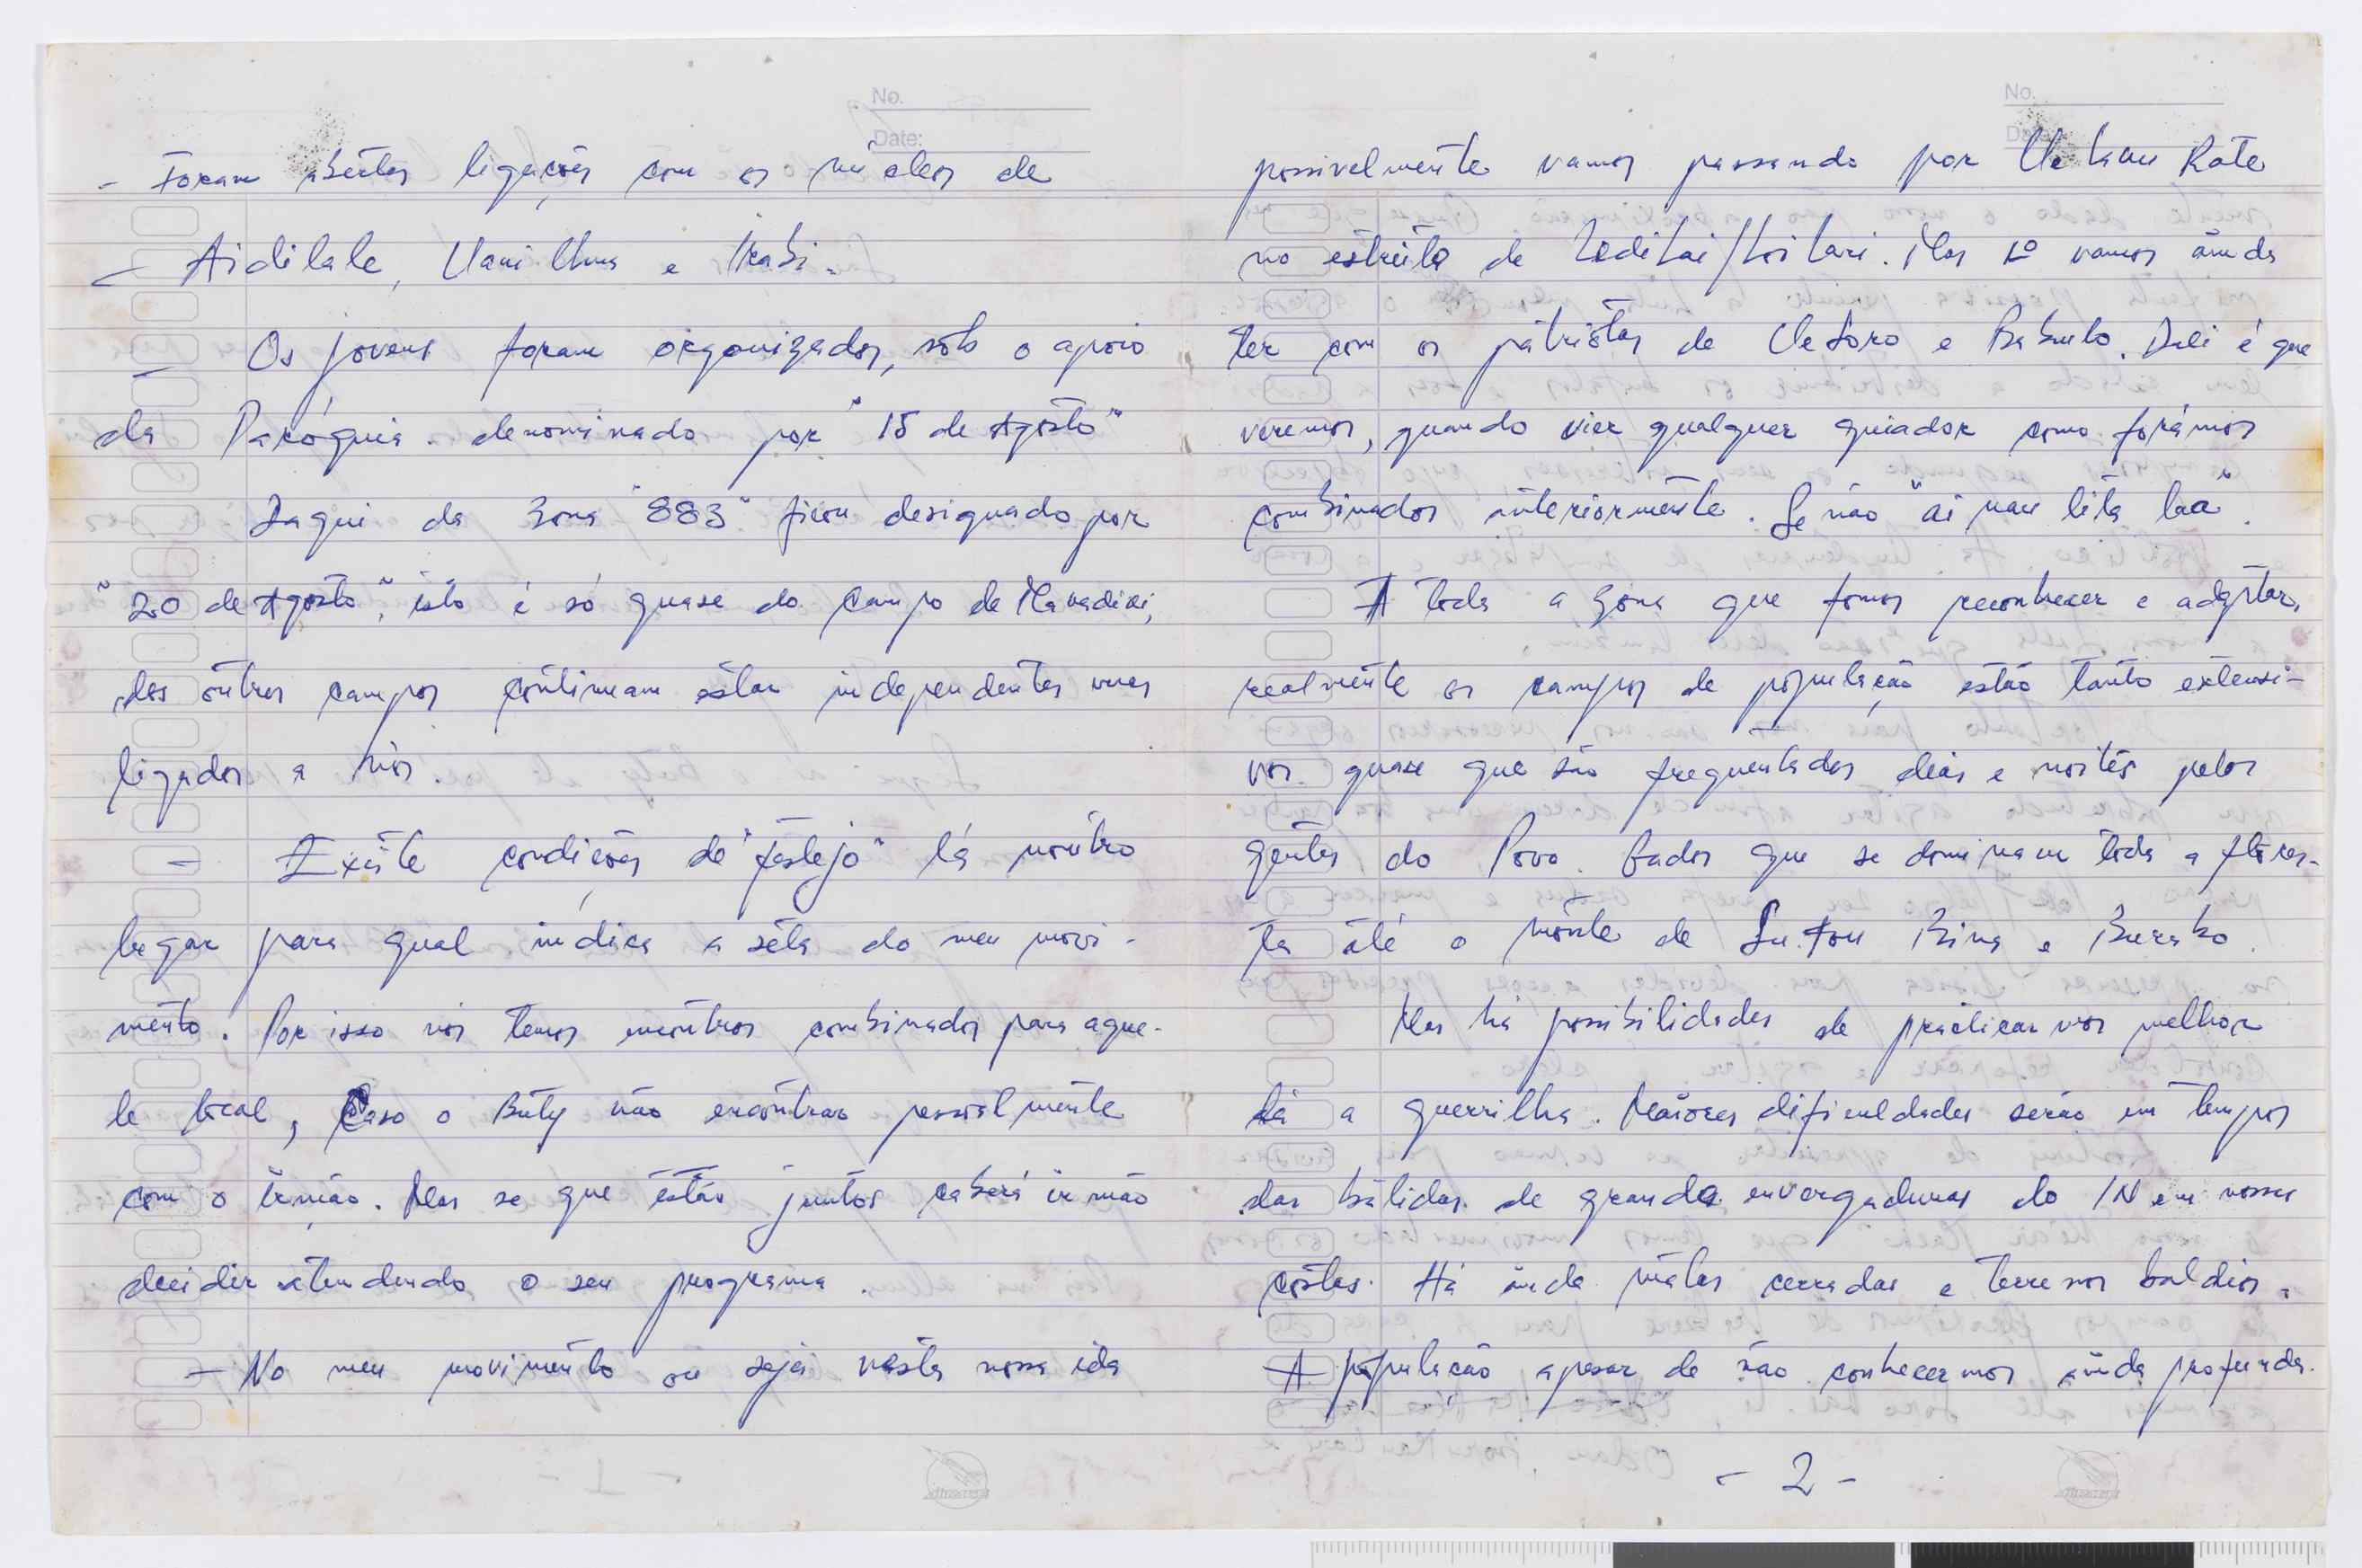 No.
Date:
- Foram abertas ligações com os núcleos de
- Aidilale, Uani Uma e Irabi.
- Os jovens foram organizados, sob o apoio
da Paróquia. denominado por "15 de Agosto"
Daqui da Zona "883" ficou designado por
"20 de Agosto", isto é só quase do campo de
dos outros campos continuam estar independentes mas
ligados a nós.
- Existe condições de "festejo" lá noutro
lugar para qual indica a seta do meu movi-
mento. Por isso nós temos encontros combinados para aque-
le local, Caso o Buty não encontrar pessoalmente
com o irmão. Mas se que estão juntos caberá irmão
decidir atendendo o seu programa.
- No meu movimento ou seja nesta nossa ida
No.
Date:
possivelmente vamos passando por Rate
no estreito de Mas 1º vamos ainda
ter com os patriotas de e Dali é que
veremos, quando vier qualquer guiador como forámos
combinados anteriormente. Se não "ai nau lita laa".
A toda a zona que fomos reconhecer e adaptar,
realmente os campos de população estão tanto extensi-
vos. quase que são frequentados dias e noites pelos
gentes do Povo. Gados que se dominam toda a flores-
ta até o monte de Bina e
Mas há possibilidades de praticar-mos melhor
lá a guerrilha. Maiores dificuldades serão em tempos
das batidas de grande envergaduras do IN em nossas
costas. Há ainda matas cerradas e terrenos baldios.
A população apesar de não conhecermos ainda profunda-
- 2 -